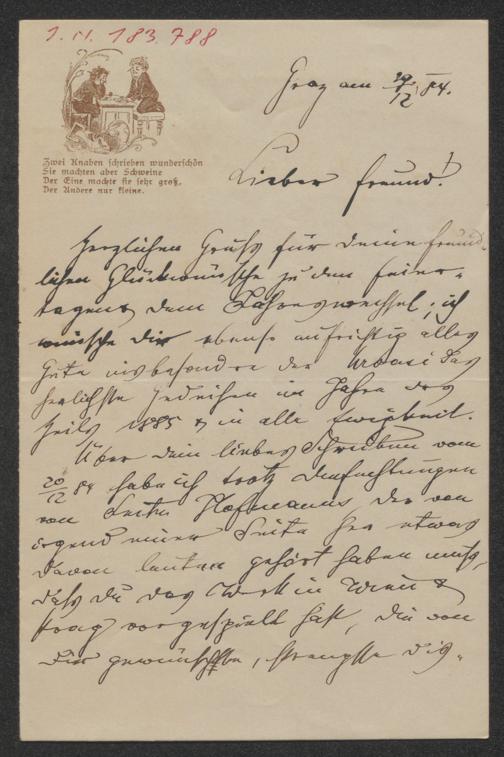 I. N. 183.788
Zwei Knaben schrieben wunderschön
Sie machten aber Schweine
Der Eine machte sie sehr groß,
Der Andere nur kleine.
Graz am 29/12 84.
Lieber Freund!
Herzlichen Gruß für Deine freund-
lichen Glückwünsche zu den Feier-
tagen & dem Jahreswechsel; ich
wünsche Dir ebenso aufrichtig alles
Gute insbesondre der das
herrlichste Gedeihen im Jahre des
Heils 1885 & in alle Ewigkeit.
Über Dein liebes Schreiben vom
20/12 84 habe ich trotz Anfechtungen
von Seite Hofmanns, der von
irgend einer Seite her etwas
davon läuten gehört haben muß,
daß Du das Werk in Wien &
Prag vorgespielt hast, die von
Dir gewünschte, strengste Dis-